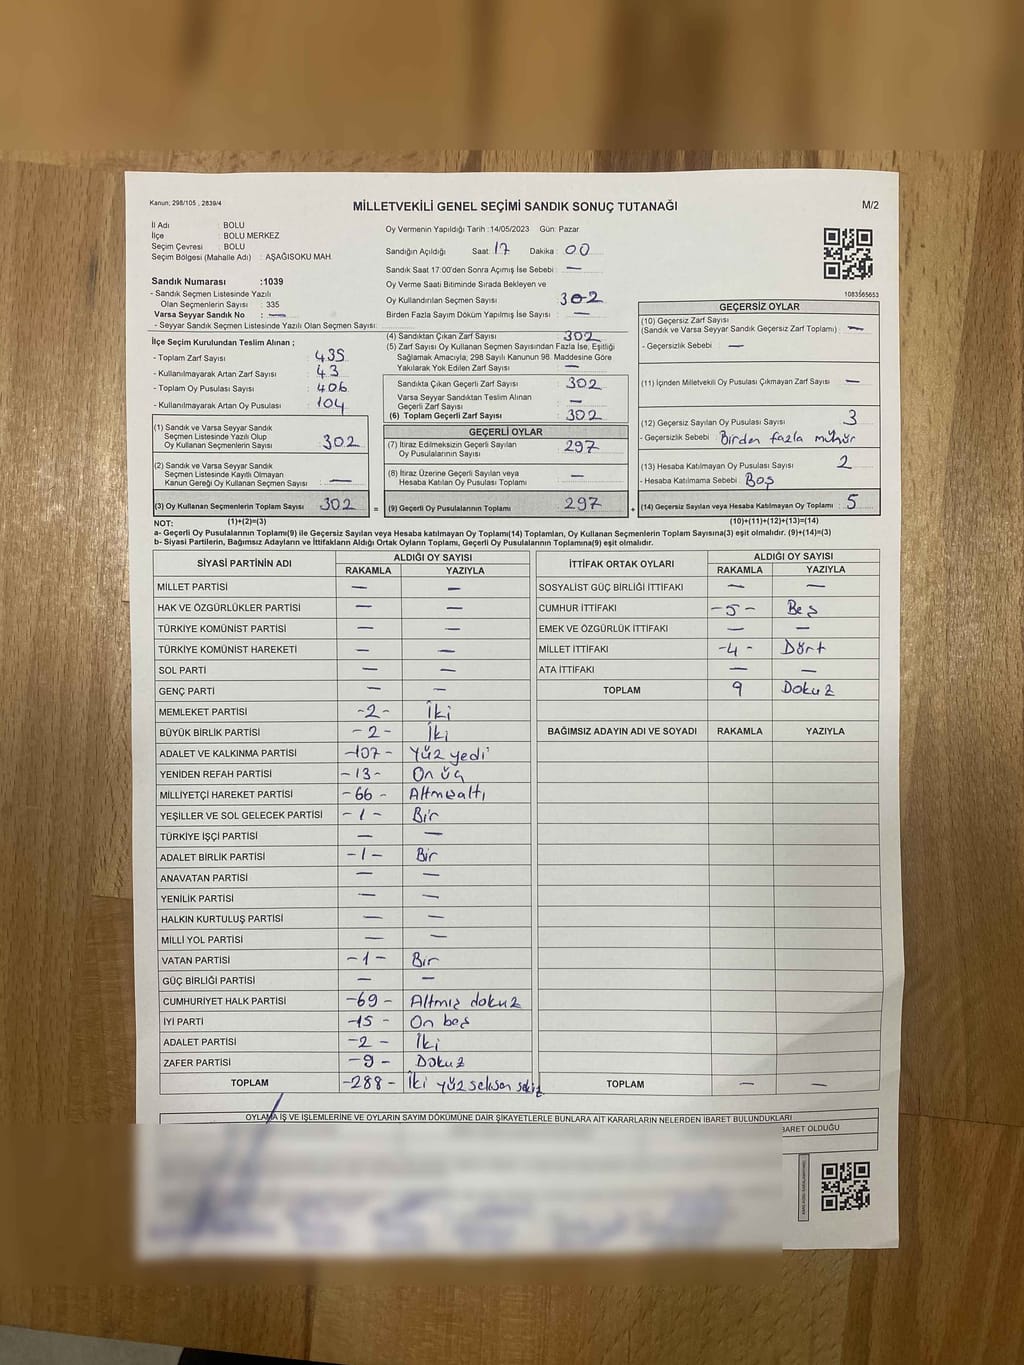 Kanun; 298/105 , 2839/4
MİLLETVEKİLİ GENEL SEÇİMİ SANDIK SONUÇ TUTANAĞI
M/2
İl Adı : BOLU
İlçe : BOLU MERKEZ
Seçim Çevresi : BOLU
Seçim Bölgesi (Mahalle Adı) : AŞAĞISOKU MAH.
Sandık Numarası :1039
- Sandık Seçmen Listesinde Yazılı
Olan Seçmenlerin Sayısı : 335
Varsa Seyyar Sandık No : —
- Seyyar Sandık Seçmen Listesinde Yazılı Olan Seçmen Sayısı:
Oy Vermenin Yapıldığı Tarih :14/05/2023 Gün: Pazar
Sandığın Açıldığı Saat 17 Dakika : 00
Sandık Saat 17:00'den Sonra Açımış İse Sebebi : —
Oy Verme Saati Bitiminde Sırada Bekleyen ve
Oy Kullandırılan Seçmen Sayısı 302
Birden Fazla Sayım Döküm Yapılmış İse Sayısı : —
1083565653
İlçe Seçim Kurulundan Teslim Alınan ;
- Toplam Zarf Sayısı : 435
- Kullanılmayarak Artan Zarf Sayısı : 43
- Toplam Oy Pusulası Sayısı : 406
- Kullanılmayarak Artan Oy Pusulası : 104
(1) Sandık ve Varsa Seyyar Sandık
Seçmen Listesinde Yazılı Olup
Oy Kullanan Seçmenlerin Sayısı 302
(2) Sandık ve Varsa Seyyar Sandık
Seçmen Listesinde Kayıtlı Olmayan
Kanun Gereği Oy Kullanan Seçmen Sayısı : —
(3) Oy Kullanan Seçmenlerin Toplam Sayısı 302 =
(4) Sandıktan Çıkan Zarf Sayısı 302
(5) Zarf Sayısı Oy Kullanan Seçmen Sayısından Fazla İse, Eşitliği
Sağlamak Amacıyla; 298 Sayılı Kanunun 98. Maddesine Göre
Yakılarak Yok Edilen Zarf Sayısı : —
Sandıkta Çıkan Geçerli Zarf Sayısı 302
Varsa Seyyar Sandıktan Teslim Alınan
Geçerli Zarf Sayısı —
(6) Toplam Geçerli Zarf Sayısı 302
GEÇERLİ OYLAR
(7) İtiraz Edilmeksizin Geçerli Sayılan
Oy Pusulalarının Sayısı 297
(8) İtiraz Üzerine Geçerli Sayılan veya
Hesaba Katılan Oy Pusulası Toplamı —
(9) Geçerli Oy Pusulalarının Toplamı 297 +
GEÇERSİZ OYLAR
(10) Geçersiz Zarf Sayısı
(Sandık ve Varsa Seyyar Sandık Geçersiz Zarf Toplamı) : —
- Geçersizlik Sebebi : —
(11) İçinden Milletvekili Oy Pusulası Çıkmayan Zarf Sayısı —
(12) Geçersiz Sayılan Oy Pusulası Sayısı 3
- Geçersizlik Sebebi : Birden fazla mühür
(13) Hesaba Katılmayan Oy Pusulası Sayısı 2
- Hesaba Katılmama Sebebi : Boş
(14) Geçersiz Sayılan veya Hesaba Katılmayan Oy Toplamı : 5
NOT: (1)+(2)=(3) (10)+(11)+(12)+(13)=(14)
a- Geçerli Oy Pusulalarının Toplamı(9) ile Geçersiz Sayılan veya Hesaba katılmayan Oy Toplamı(14) Toplamları, Oy Kullanan Seçmenlerin Toplam Sayısına(3) eşit olmalıdır. (9)+(14)=(3)
b- Siyasi Partilerin, Bağımsız Adayların ve İttifakların Aldığı Ortak Oyların Toplamı, Geçerli Oy Pusulalarının Toplamına(9) eşit olmalıdır.
SİYASİ PARTİNİN ADI ALDIĞI OY SAYISI
RAKAMLA YAZIYLA
MİLLET PARTİSİ — —
HAK VE ÖZGÜRLÜKLER PARTİSİ — —
TÜRKİYE KOMÜNİST PARTİSİ — —
TÜRKİYE KOMÜNİST HAREKETİ — —
SOL PARTİ — —
GENÇ PARTİ — —
MEMLEKET PARTİSİ -2- İki
BÜYÜK BİRLİK PARTİSİ -2- İki
ADALET VE KALKINMA PARTİSİ -107- Yüz yedi
YENİDEN REFAH PARTİSİ -13- On üç
MİLLİYETÇİ HAREKET PARTİSİ -66- Altmışaltı
YEŞİLLER VE SOL GELECEK PARTİSİ -1- Bir
TÜRKİYE İŞÇİ PARTİSİ — —
ADALET BİRLİK PARTİSİ -1- Bir
ANAVATAN PARTİSİ — —
YENİLİK PARTİSİ — —
HALKIN KURTULUŞ PARTİSİ — —
MİLLİ YOL PARTİSİ — —
VATAN PARTİSİ -1- Bir
GÜÇ BİRLİĞİ PARTİSİ — —
CUMHURİYET HALK PARTİSİ -69- Altmış dokuz
İYİ PARTİ -15- On beş
ADALET PARTİSİ -2- İki
ZAFER PARTİSİ -9- Dokuz
TOPLAM -288- İki yüz seksen sekiz
İTTİFAK ORTAK OYLARI ALDIĞI OY SAYISI
RAKAMLA YAZIYLA
SOSYALİST GÜÇ BİRLİĞİ İTTİFAKI — —
CUMHUR İTTİFAKI -5- Beş
EMEK VE ÖZGÜRLÜK İTTİFAKI — —
MİLLET İTTİFAKI -4- Dört
ATA İTTİFAKI — —
TOPLAM 9 Dokuz
BAĞIMSIZ ADAYIN ADI VE SOYADI RAKAMLA YAZIYLA
TOPLAM — —
OYLAMA İŞ VE İŞLEMLERİNE VE OYLARIN SAYIM DÖKÜMÜNE DAİR ŞİKAYETLERLE BUNLARA AİT KARARLARIN NELERDEN İBARET BULUNDUKLARI
BARET OLDUĞU